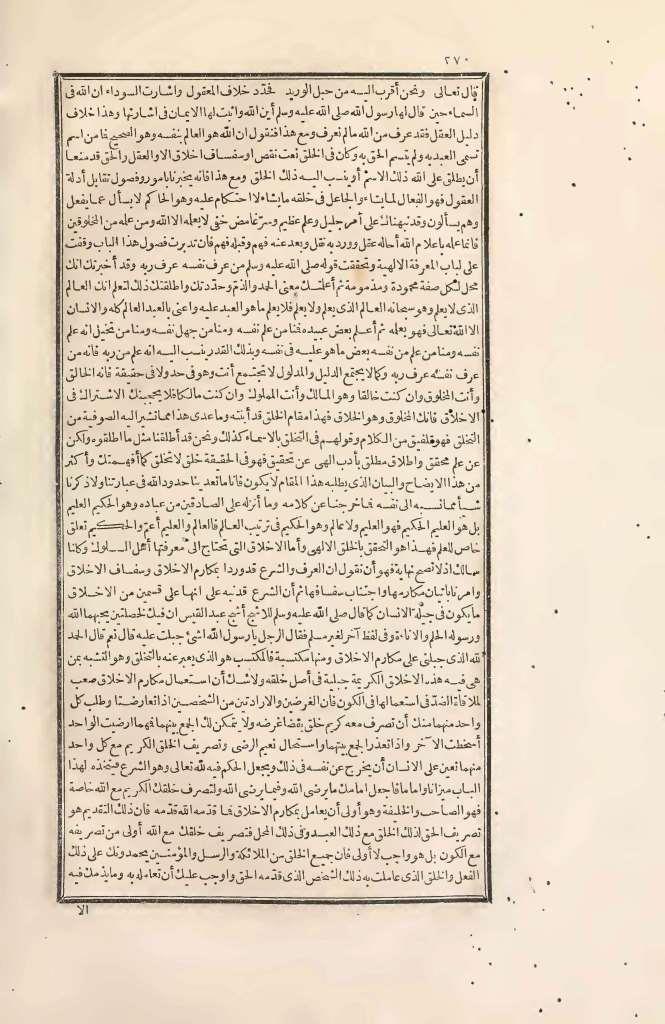 ٢٧٠
قال تعالى ونحن أقرب اليه من حبل الوريد فحدد خلاف المعقول واشارت السوداء ان الله فى
السماء حين قال لها رسول الله صلى الله عليه وسلم أين الله وأثبت لها الايمان فى اشارتها وهذا خلاف
دليل العقل فقد عرف من الله ما لم نعرف ومع هذا فنقول ان الله هو العالم بنفسه وهو الصحيح فما من اسم
تسمى العبد به ولم يتسم الحق به وكان فى الخلق نعت نقص أو سفساف اخلاق الا والعقل والحق قد منعا
أن يطلق على الله ذلك الاسم أو ينسب اليه ذلك الخلق ومع هذا فانه يخبرنا بامور وفصول تقابل أدلة
العقول فهو الفعال لما يشاء والجاعل فى خلقه ما يشاء لا احتكام عليه وهو الحاكم لا يسأل عما يفعل
وهم يسألون وقد نبهناك على أمر جليل وعلم عظيم وسر غامض خفى لا يعلمه الا الله ومن علمه من المخلوقين
فانما علمه باعلام الله أحاله عقل وورد به نقل وبعد عنه فهم وقبله فهم فان تدبرت فصول هذا الباب وقفت
على لباب المعرفة الالهية وتحققت قوله صلى الله عليه وسلم من عرف نفسه عرف ربه وقد أخبرتك انك
محل لكل صفة محمودة ومذمومة ثم أعلمتك معنى الحمد والذم وحددتك وأطلقتك ذلك لتعلم انك العالم
الذى لا يعلم وهو سبحانه العالم الذى يعلم ولا يعلم فلا يعلم ما هو العبد عليه وأعنى بالعبد العالم كله والانسان
الا الله تعالى فهو يعلمه ثم أعلم بعض عبيده فمنا من علم نفسه ومنا من جهل نفسه ومنا من تخيل انه علم
نفسه ومنا من علم من نفسه بعض ما هو عليه فى نفسه وبذلك القدر ينسب اليه انه علم من ربه فانه من
عرف نفسه عرف ربه وكما لا يجتمع الدليل والمدلول لا تجتمع أنت وهو فى حد ولا فى حقيقة فانه الخالق
وأنت المخلوق وان كنت خالقا وهو المالك وأنت المملوك وان كنت مالكا فلا يحجبنك الاشتراك فى
الاخلاق فانك المخلوق وهو الخلاق فهذا مقام الخلق قد أبنته وما عدى هذا مما تشير اليه الصوفية من
التخلق فهو تلفيق من الكلام وقولهم فى التخلق بالاسماء كذلك ونحن قد أطلقنا مثل ما أطلقوه ولكن
عن علم محقق واطلاق مطلق بأدب الهى عن تحقيق فهو فى الحقيقة خلق لا تخلق كما أفهمتك وأكثر
من هذا الايضاح والبيان الذى يطلبه هذا المقام لا يكون فانا ما تعدينا حدود الله فى عبارتنا ولا ذكرنا
شيأ مما نسبه الى نفسه فما خرجنا عن كلامه وما أنزله على الصادقين من عباده وهو الحكيم العليم
بل هو العليم الحكيم فهو العليم ولا عالم وهو الحكيم فى ترتيب العالم فالعالم والعليم أعم والحكيم تعلق
خاص للعلم فهذا هو التحقق بالخلق الالهى وأما الاخلاق التى تحتاج الى معرفتها أهل السلوك وكلنا
سالك اذ لا تصح نهاية فهو أن نقول ان العرف والشرع قد وردا بمكارم الاخلاق وسفساف الاخلاق
وأمرنا باتيان مكارمها واجتناب سفسافها ثم أن الشرع قد نبه على انها على قسمين من الاخلاق
ما يكون فى جبلة الانسان كما قال صلى الله عليه وسلم للاشج أشج عبد القيس ان فيك لخصلتين يحبهما الله
ورسوله الحلم والاناءة وفى لفظ آخر لغير مسلم فقال الرجل يا رسول الله اشئ جبلت عليه قال نعم قال الحمد
لله الذى جبلنى على مكارم الاخلاق ومنها مكتسبة فالمكتسب هو الذى يعبر عنه بالتخلق وهو التشبه بمن
هى فيه هذه الاخلاق الكريمة جبلية فى أصل خلقه ولا شك أن استعمال مكارم الاخلاق صعب
لملاقاة الضد فى استعمالها فى الكون فان الغرضين والارادتين من الشخصين اذا تعارضتا وطلب كل
واحد منهما منك أن تصرف معه كريم خلق بقضاء غرضه ولا يتمكن لك الجمع بينهما فمهما أرضيت الواحد
أسخطت الآخر واذا تعذر الجمع بينهما واستحال تعميم الرضى وتصريف الخلق الكريم مع كل واحد
منهما تعين على الانسان أن يخرج عن نفسه فى ذلك ويجعل الحكم فيه لله تعالى وهو الشرع فيتخذه لهذا
الباب ميزانا واماما فاجعل امامك ما يرضى الله وفيما يرضى الله ولتصرف خلقك الكريم مع الله خاصة
فهو الصاحب والخليفة وهو أولى أن يعامل بمكارم الاخلاق فما قدمه الله قدمه فان ذلك التقديم هو
تصريف الحق لذلك الخلق مع ذلك العبد وفى ذلك المحل فتصريف خلقك مع الله أولى من تصريفه
مع الكون بل هو واجب لا أولى فان جميع الخلق من الملائكة والرسل والمؤمنين يحمدونك على ذلك
الفعل والخلق الذى عاملت به ذلك الشخص الذى قدمه الحق وأوجب عليك أن تعامله به وما يذمك فيه
الا